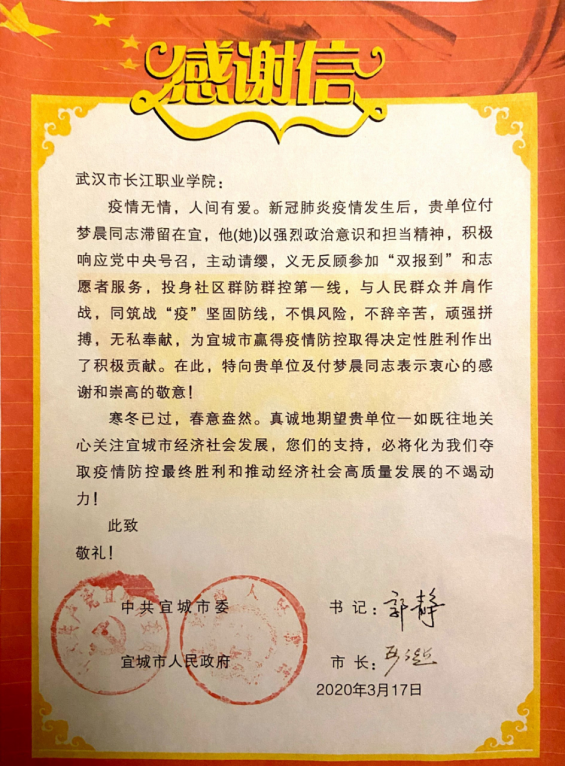 感谢信
武汉市长江职业学院：
疫情无情，人间有爱。新冠肺炎疫情发生后，贵单位付
梦晨同志滞留在宜，他(她)以强烈政治意识和担当精神，积极
响应党中央号召，主动请缨，义无反顾参加“双报到”和志
愿者服务，投身社区群防群控第一线，与人民群众并肩作
战，同筑战“疫”坚固防线，不惧风险，不辞辛苦，顽强拼
搏，无私奉献，为宜城市赢得疫情防控取得决定性胜利作出
了积极贡献。在此，特向贵单位及付梦晨同志表示衷心的感
谢和崇高的敬意！
寒冬已过，春意盎然。真诚地期望贵单位一如既往地关
心关注宜城市经济社会发展，您们的支持，必将化为我们夺
取疫情防控最终胜利和推动经济社会高质量发展的不竭动
力！
此致
敬礼！
中共宜城市委 书记：郭静
宜城市人民政府 市长：
2020年3月17日